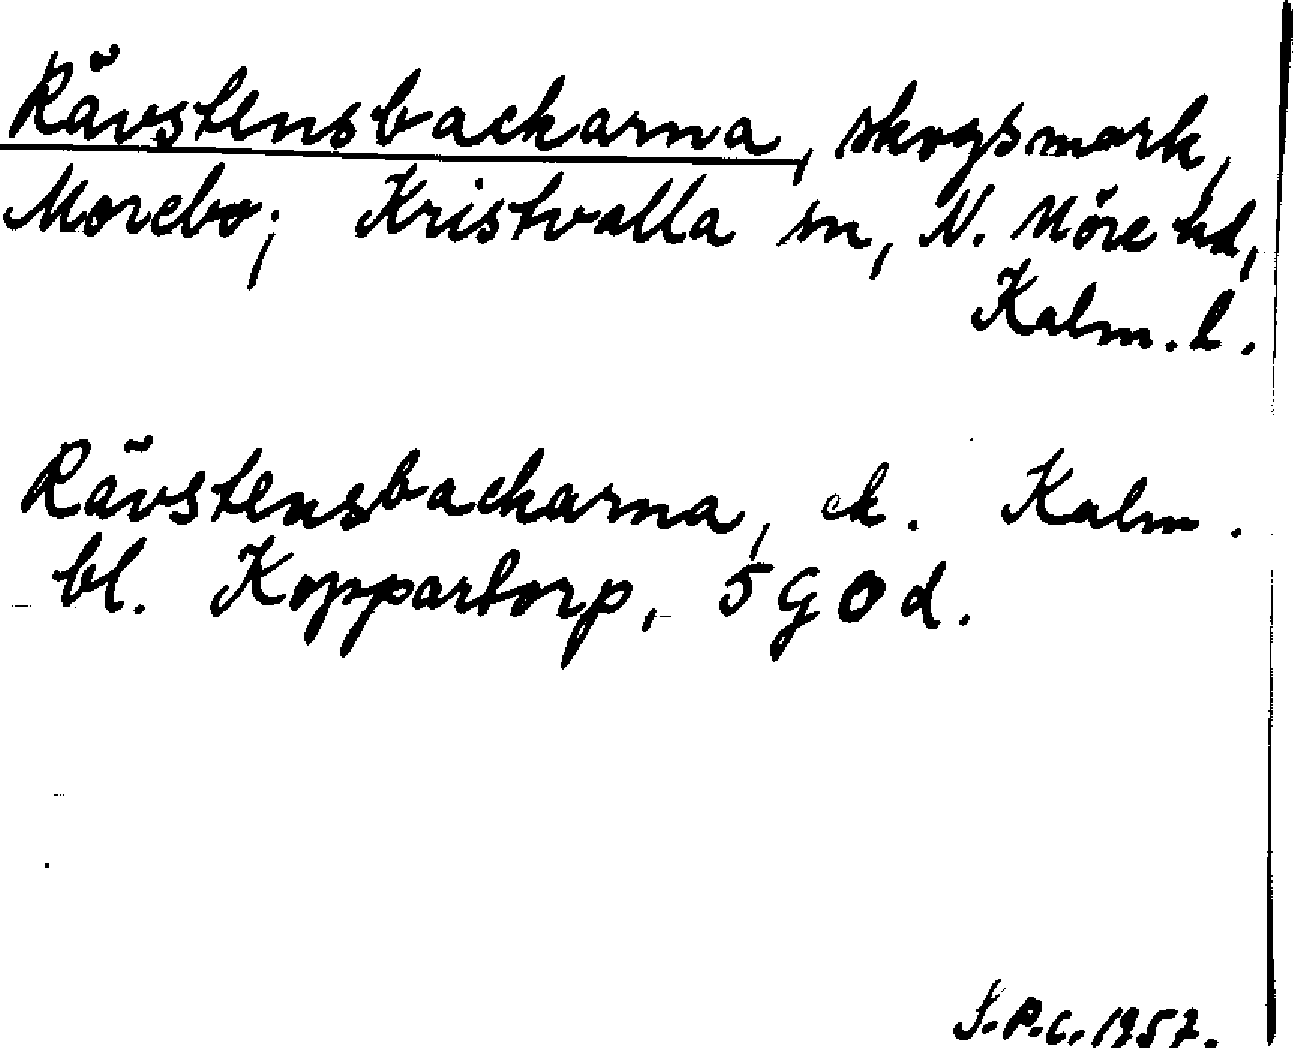 Rävstensbackarna, skogsmark,
Morebo; Kristvalla sn, N. Möre hd,
Kalm. l.
Rävstensbackarna, ek. Kalm.
bl. Koppartorp, 5 G 0 d.
S.P.C. 1957.